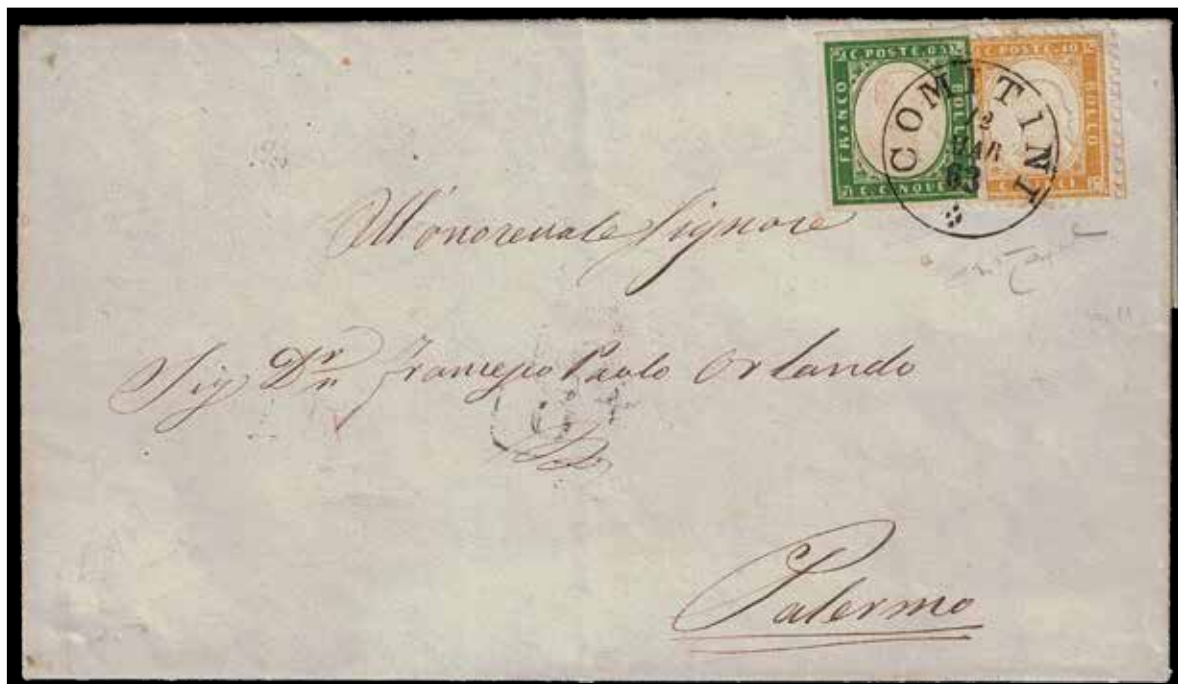 C. POSTE. 05
FRANCO
BOLLO
C. CINQUE
C. POSTE. 10
BOLLO
COMITINI
12
MAR
63
All'onorevole Signore
Sig Dn Francesco Paolo Orlando
Palermo